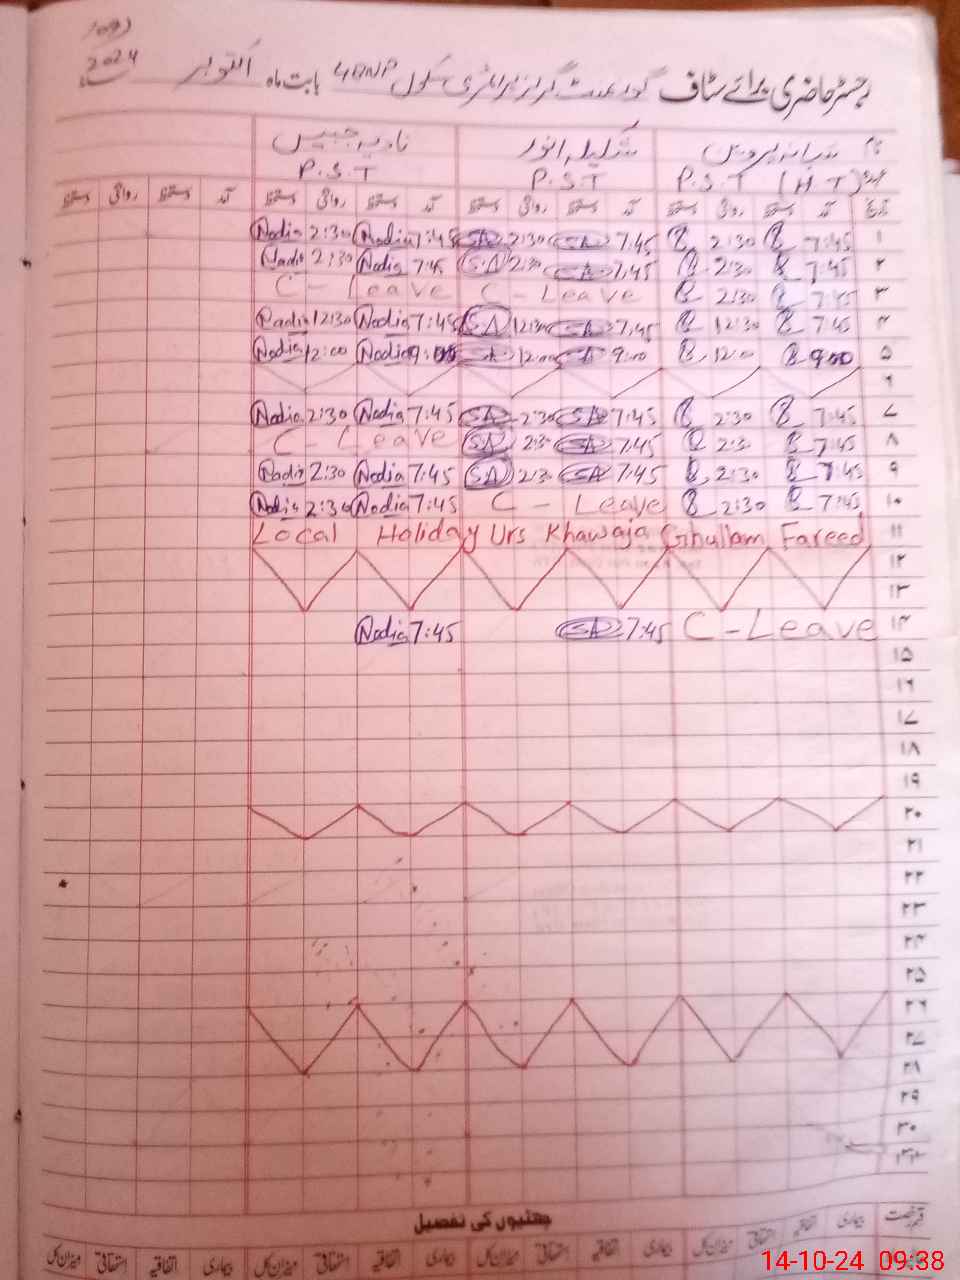 2024
رجسٹر حاضری برائے سٹاف گورنمنٹ گرلز پرائمری سکول 4BNP بابت ماہ اکتوبر
نام شبانہ پروین شکیلہ انور نادیہ جبیں
عہدہ P.S.T (H.T) P.S.T P.S.T
تاریخ آمد دستخط روانگی دستخط آمد دستخط روانگی دستخط آمد دستخط روانگی دستخط آمد دستخط روانگی دستخط
۱ 7:45 2:30 SA 7:45 SA 2:30 Nadia 7:45 Nadia 2:30
۲ 7:45 2:30 SA 7:45 SA 2:30 Nadia 7:45 Nadia 2:30
۳ 7:45 2:30 C - Leave C - Leave
۴ 7:45 12:30 SA 7:45 SA 12:30 Nadia 7:45 Nadia 12:30
۵ 9:00 12:00 SA 9:00 SA 12:00 Nadia 9:00 Nadia 12:00
۶
۷ 7:45 2:30 SA 7:45 SA 2:30 Nadia 7:45 Nadia 2:30
۸ 7:45 2:30 SA 7:45 SA 2:30 C - Leave
۹ 7:45 2:30 SA 7:45 SA 2:30 Nadia 7:45 Nadia 2:30
۱۰ 7:45 2:30 C - Leave Nadia 7:45 Nadia 2:30
۱۱ Local Holiday Urs Khawaja Ghullam Fareed
۱۲
۱۳
۱۴ C - Leave SA 7:45 Nadia 7:45
۱۵
۱۶
۱۷
۱۸
۱۹
۲۰
۲۱
۲۲
۲۳
۲۴
۲۵
۲۶
۲۷
۲۸
۲۹
۳۰
۳۱
چھٹیوں کی تفصیل
قسم رخصت بیماری اتفاقیہ استحقاقی میزان کل بیماری اتفاقیہ استحقاقی میزان کل بیماری اتفاقیہ استحقاقی میزان کل بیماری اتفاقیہ استحقاقی میزان کل
14-10-24 09:38